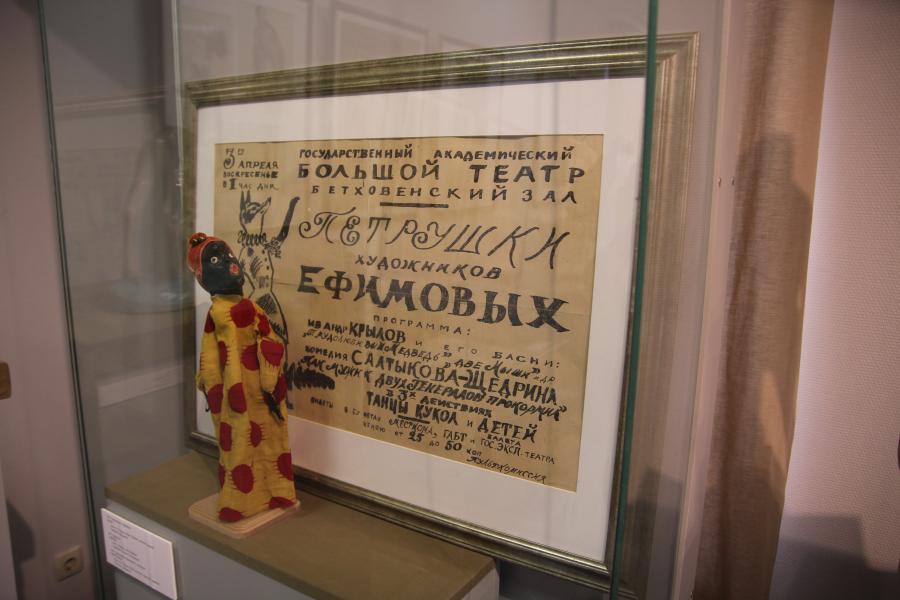 3го АПРЕЛЯ
ВОСКРЕСЕНЬЕ
в 1 ЧАС ДНЯ
ГОСУДАРСТВЕННЫЙ АКАДЕМИЧЕСКИЙ
БОЛЬШОЙ ТЕАТР
БЕТХОВЕНСКИЙ ЗАЛ
ПЕТРУШКИ
ХУДОЖНИКОВ
ЕФИМОВЫХ
ПРОГРАММА:
ИВ АНДР КРЫЛОВ И ЕГО БАСНИ:
„ТРУДОЛЮБИВЫЙ МЕДВЕДЬ" „ДВЕ МЫШИ" И ДР
КОМЕДИЯ САЛТЫКОВА-ЩЕДРИНА
„КАК МУЖИК ДВУХ ГЕНЕРАЛОВ ПРОКОРМИЛ"
В 3х ДЕЙСТВИЯХ
ТАНЦЫ КУКОЛ И ДЕТЕЙ
БАЛЕТА
БИЛЕТЫ В БУ МЕСТКОМА, ГАБТ И ГОС. ЭКСП. ТЕАТРА
ЦЕНОЮ ОТ 25 ДО 50 КОП
КУЛЬТКОМИССИЯ